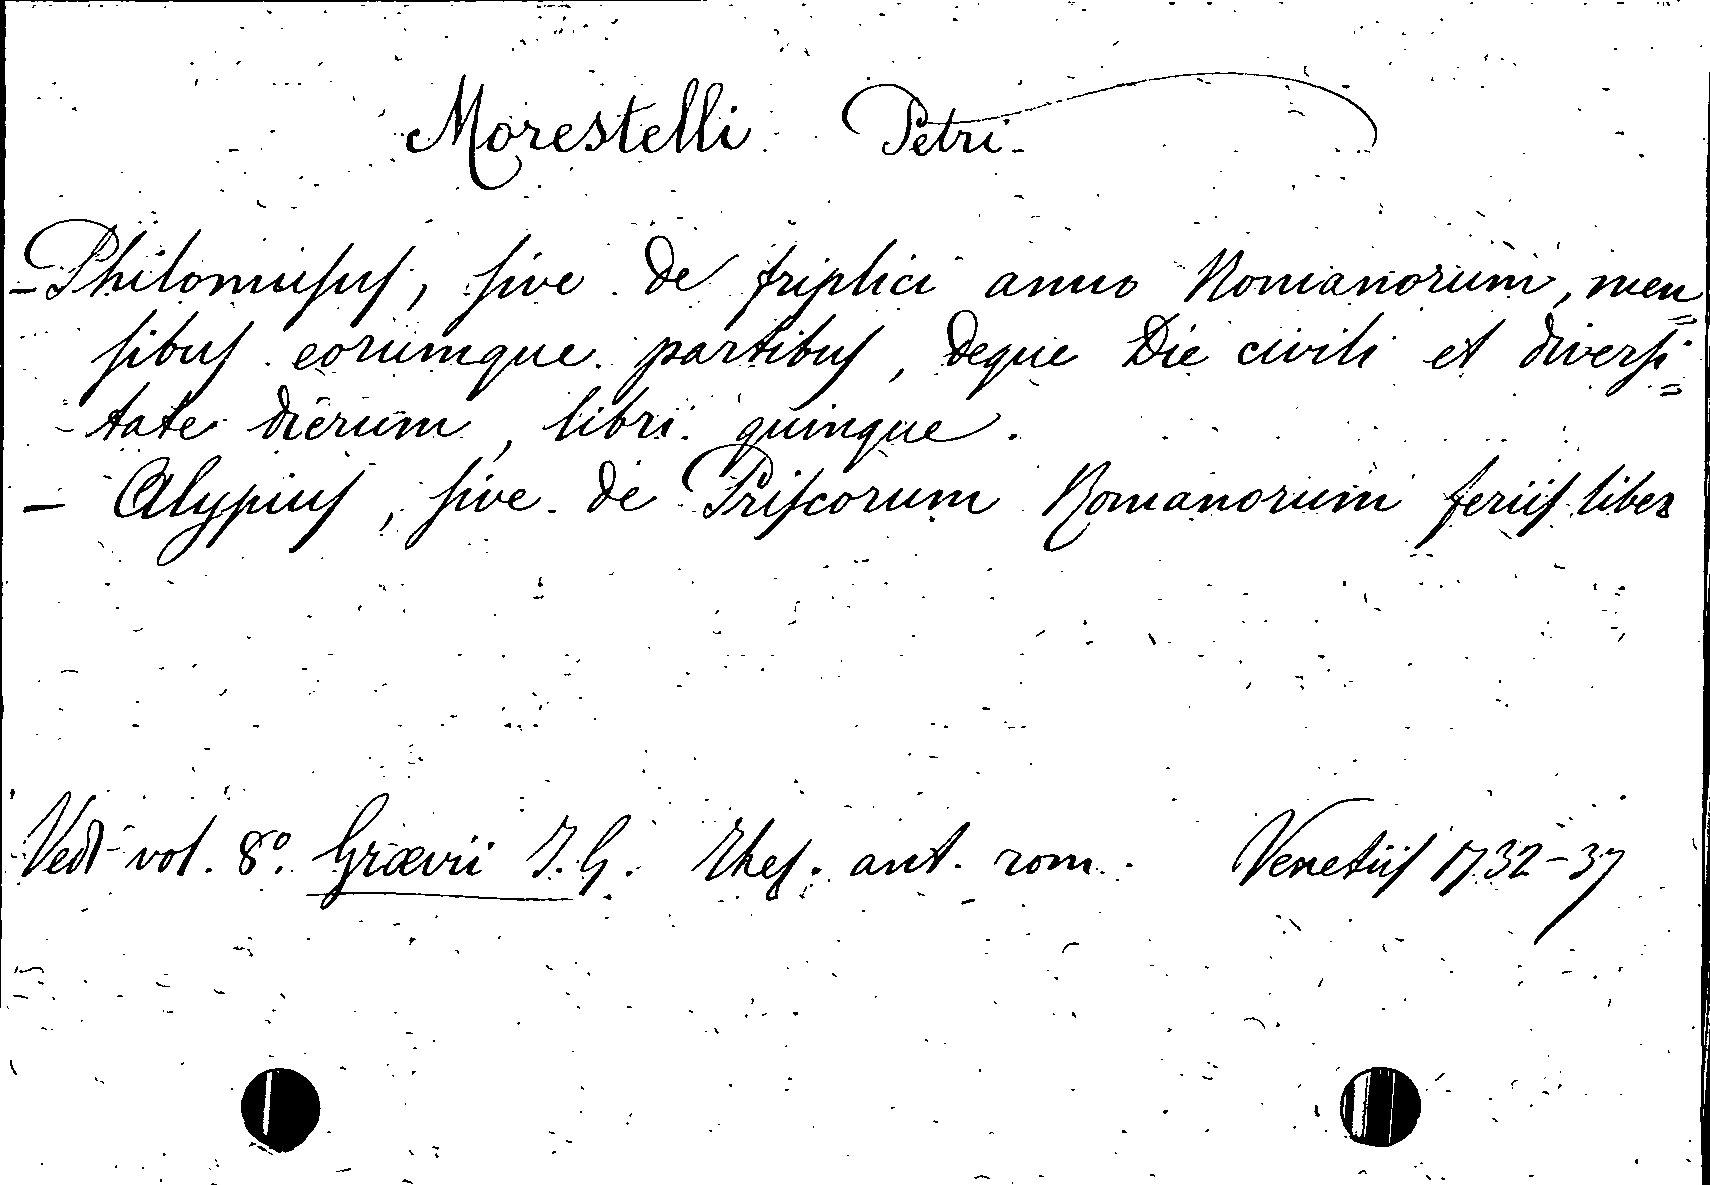 Morestelli Petri.
- Philomusus, sive de triplici anno Romanorum, men=
sibus eorumque partibus, deque Die civili et diversi=
tate dierum, libri quinque.
- Alypius, sive de Priscorum Romanorum feriis liber
Vedi vol. 8º. Grævii J. G. Thes. ant. rom. Venetiis 1732-37